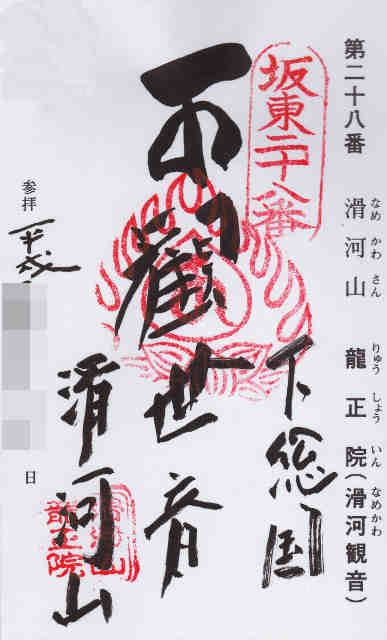 第二十八番 滑河山 龍正院(滑河観音)
なめ かわ さん りゅう しょう いん なめかわ
坂東二十八番
下総国
觀世音
滑河山
滑河山
龍正院
参拝 平成 日